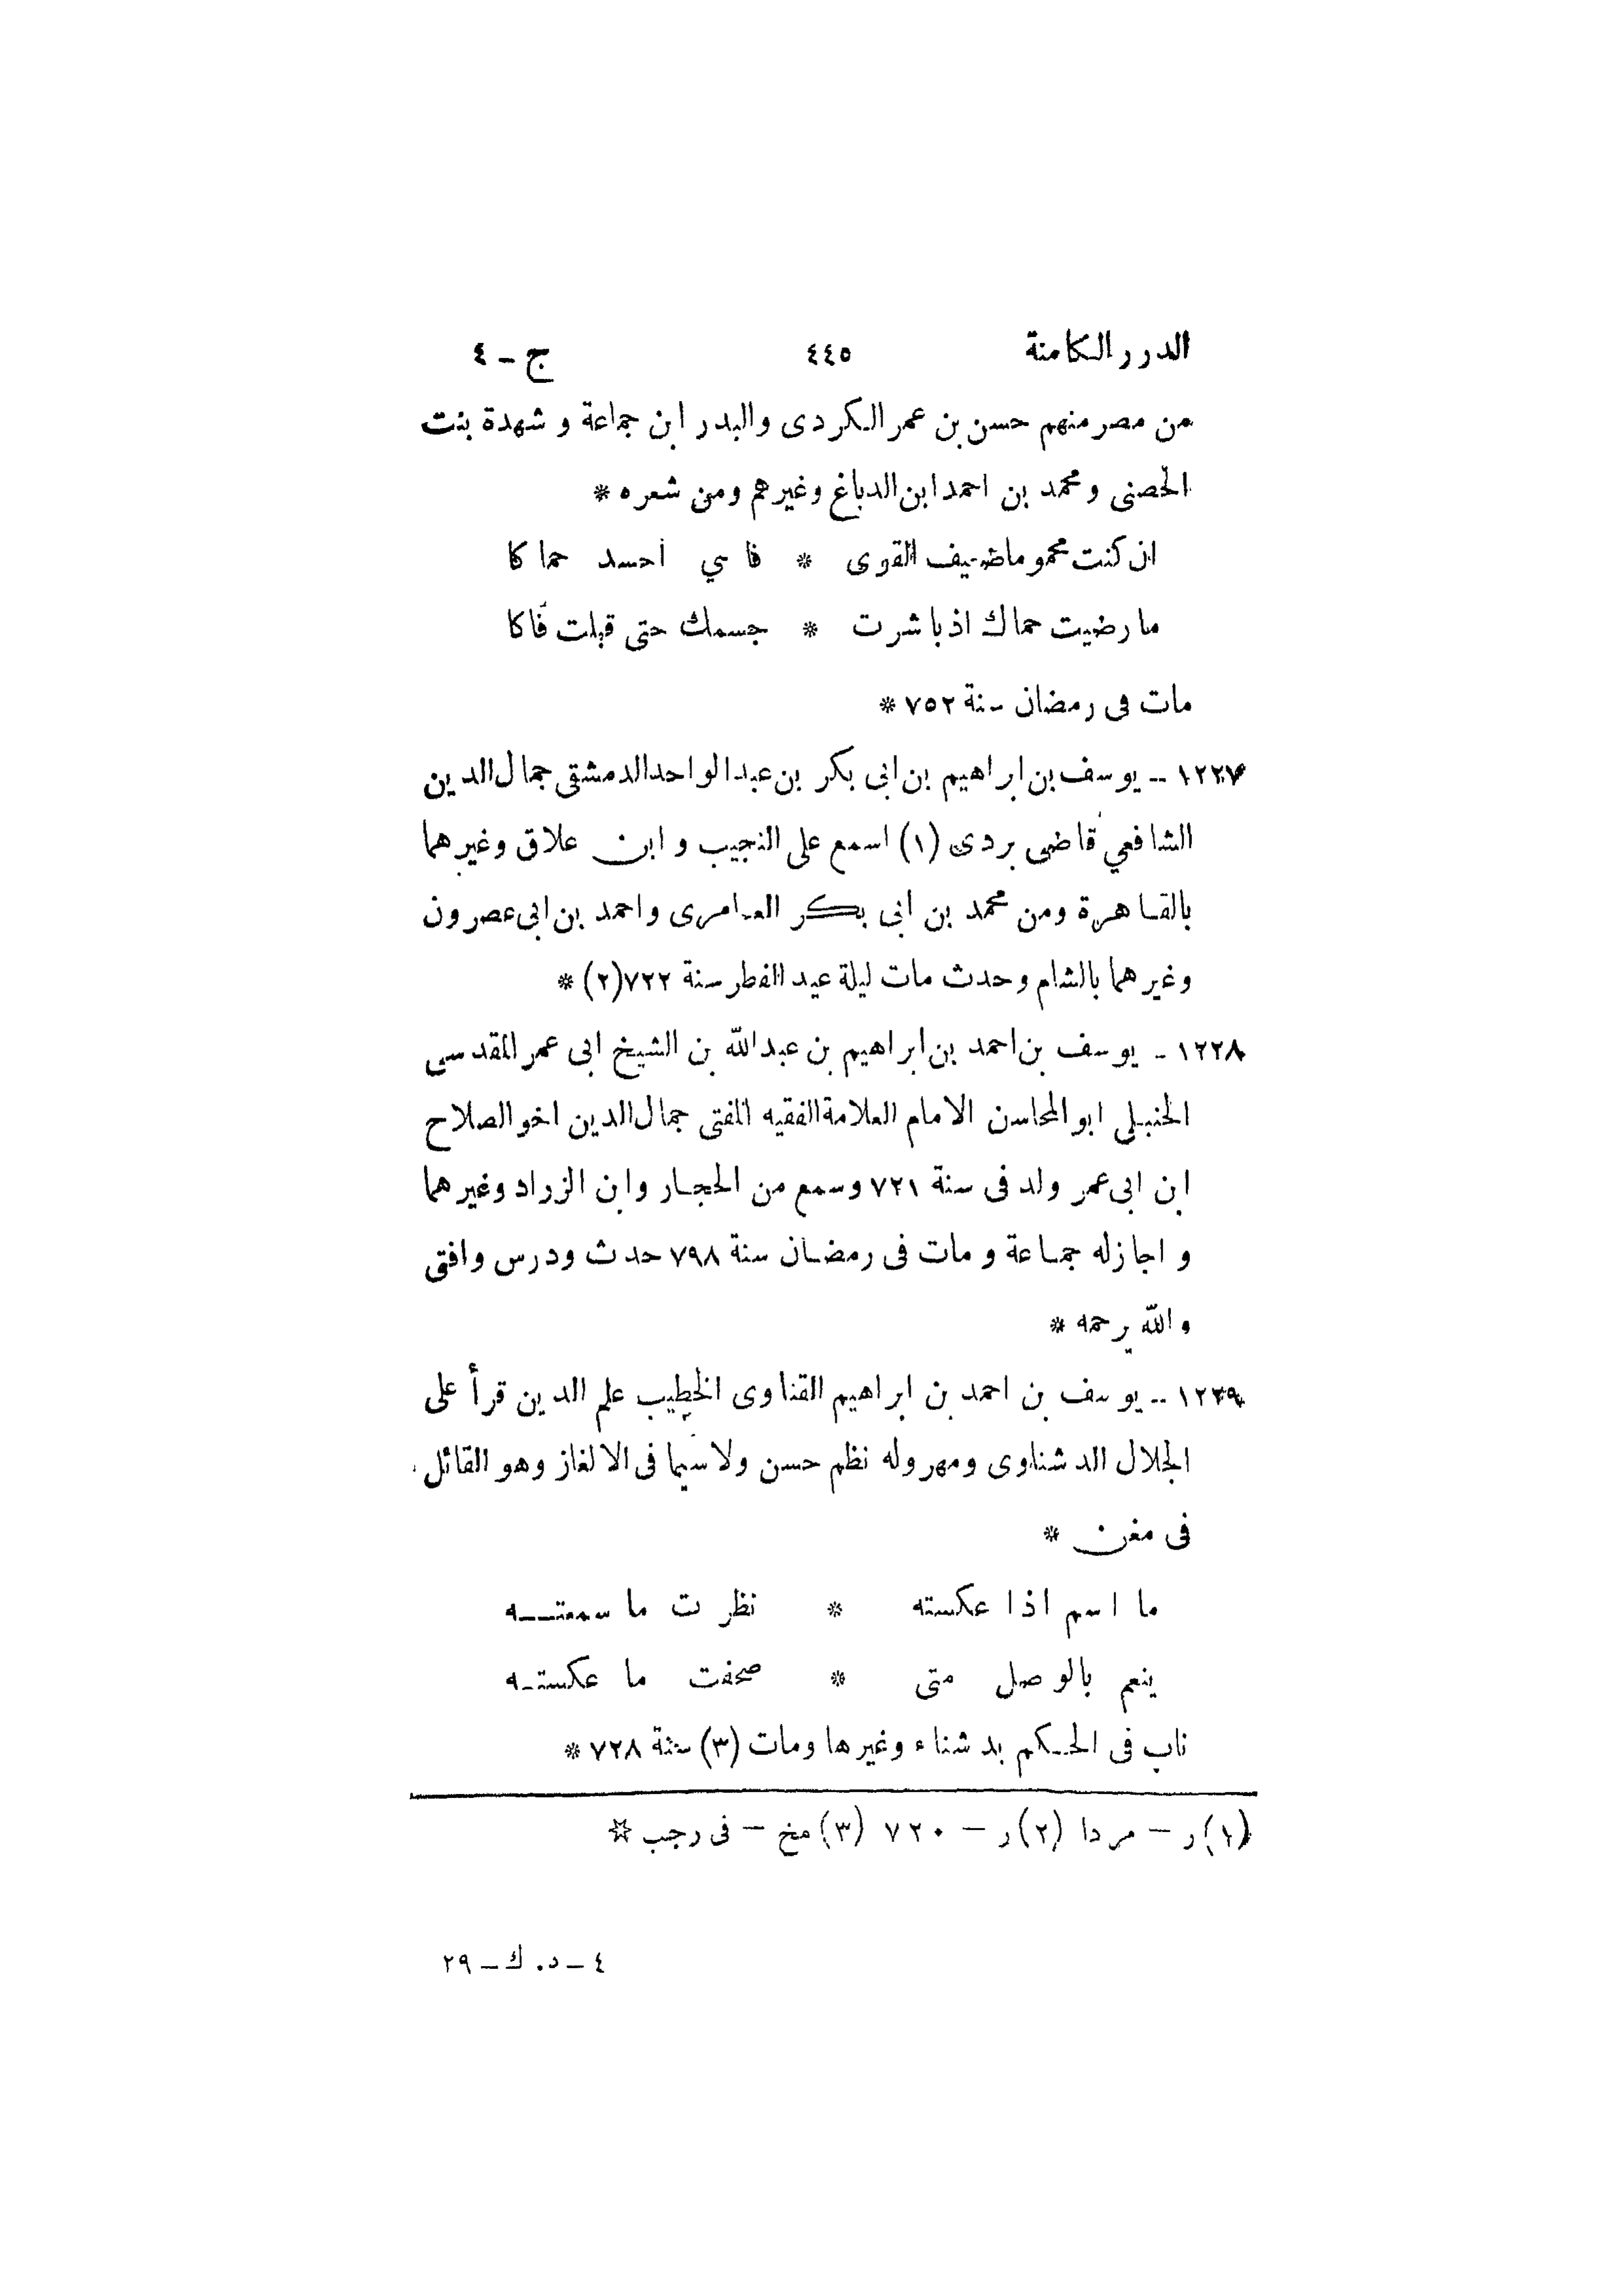 الدرر الكامنة ٤٤٥ ج - ٤
من مصر منهم حسن بن عمر الكردى والبدر ابن جماعة و شهدة بنت
الحصنى و محمد بن احمد ابن الدباغ وغيرهم ومن شعره *
ان كنت محموما ضعيف القوى * فاسي احسد حماكا
ما رضيت حماك اذ باشرت * جسمك حتى قبلت فاكا
مات فى رمضان سنة ٧٥٢ *
١٢٢٧ -- يوسف بن ابراهيم بن ابى بكر بن عبد الواحد الدمشقى جمال الدين
الشافعي قاضى بردى (١) اسمع على النجيب و ابن علاق وغيرهما
بالقاهرة ومن محمد بن ابى بكر العامرى واحمد بن ابى عصرون
وغيرهما بالشام وحدث مات ليلة عيد الفطر سنة ٧٢٢ (٢) *
١٢٢٨ - يوسف بن احمد بن ابراهيم بن عبد الله بن الشيخ ابى عمر المقدسى
الحنبلى ابو المحاسن الامام العلامة الفقيه المفتى جمال الدين اخو الصلاح
ابن ابى عمر ولد فى سنة ٧٢١ وسمع من الحجار وابن الزراد وغيرهما
و اجاز له جماعة و مات فى رمضان سنة ٧٩٨ حدث ودرس وافتى
والله يرحمه *
١٢٢٩ -- يوسف بن احمد بن ابراهيم القناوى الخطيب علم الدين قرأ على
الجلال الدشناوى ومهر وله نظم حسن ولا سيما فى الالغاز وهو القائل
فى مغن *
ما اسم اذا عكسته * نظرت ما سمعته
ينعم بالوصل متى * صحفت ما عكسته
ناب فى الحكم بدشناء وغيرها ومات (٣) سنة ٧٢٨ *
(١) ر - مردا (٢) ر - ٧٢٠ (٣) مخ - فى رجب ☆
٤ - د. ك - ٢٩